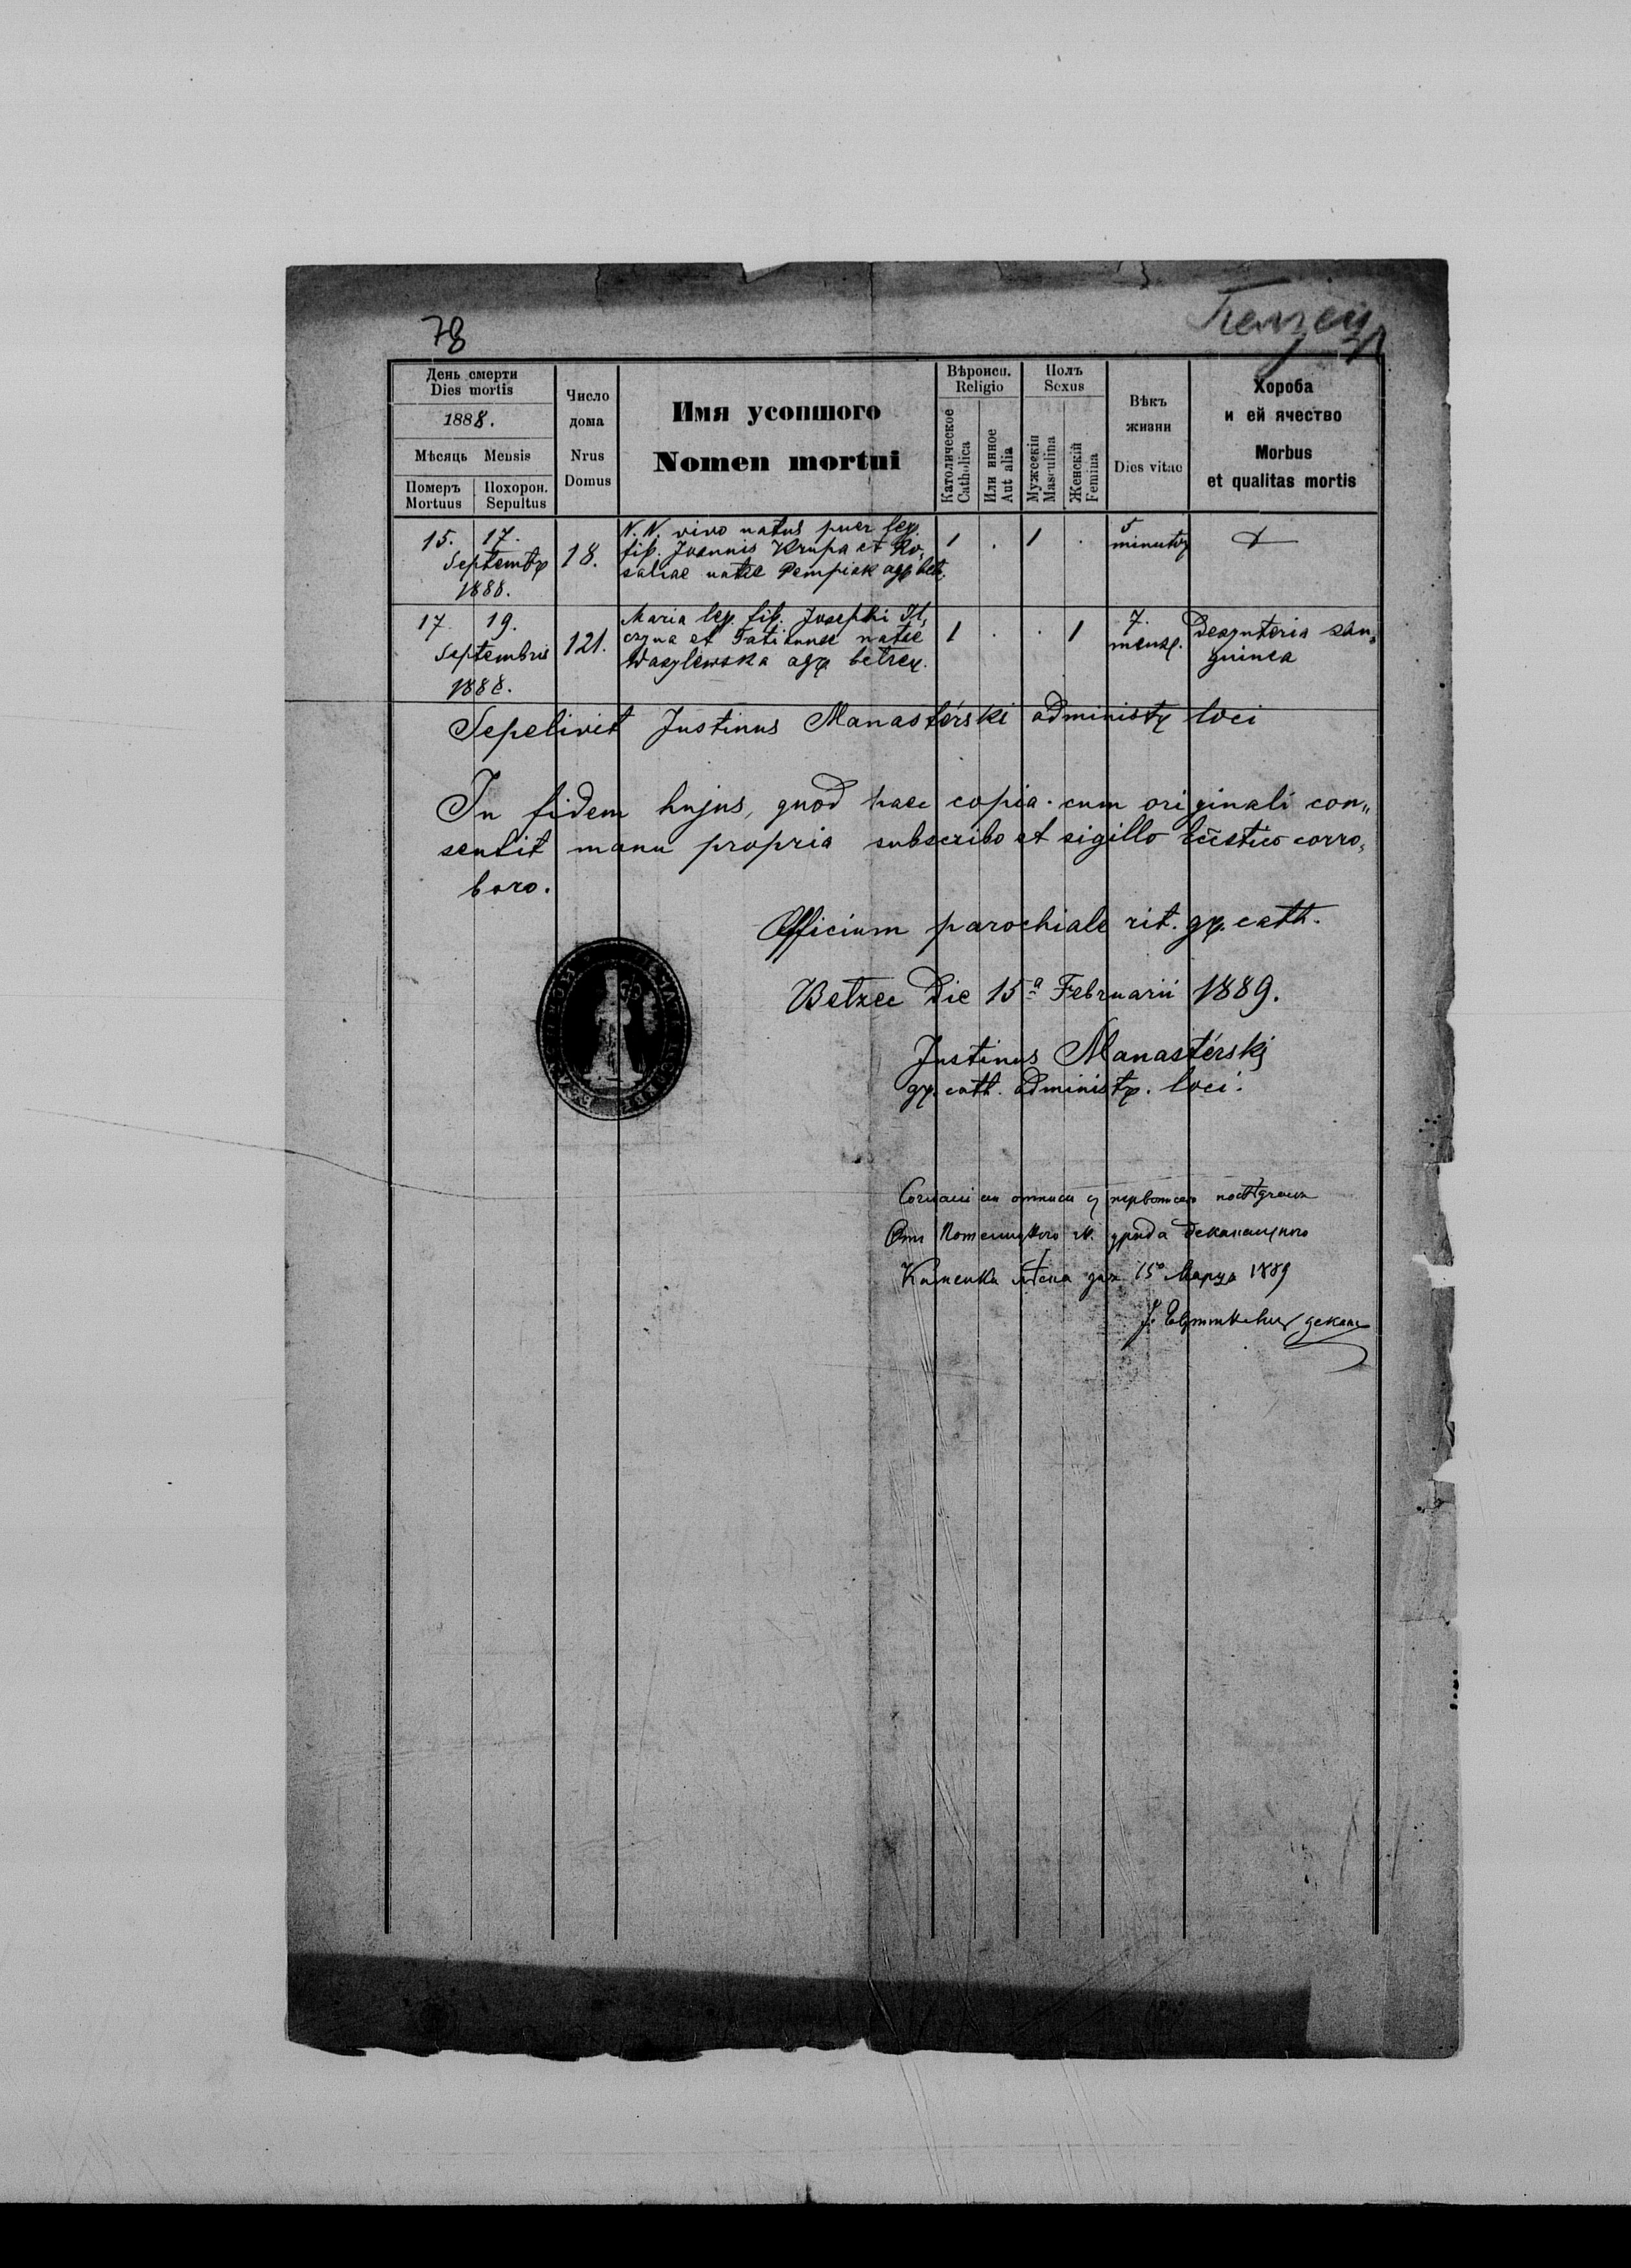 78
Белзец
День смерти
Dies mortis
1888.
Мѣсяць Mensis
Померъ
Mortuus
Похорон.
Sepultus
Число
дома
Nrus
Domus
Имя усопшого
Nomen mortui
Вѣроисп.
Religio
Католическое
Catholica
Или инное
Aut alia
Полъ
Sexus
Мужескій
Masculina
Женскій
Femina
Вѣкъ
жизни
Dies vitae
Хороба
и ей ячество
Morbus
et qualitas mortis
15. 17.
Septembr
1888.
18.
N. N. vivo natus puer leg.
fil. Joannis Krupa et Ro„
saliae natae Pempiak agr. bełz.
1 . 1 .
5
minutor
17 19.
Septembris
1888.
121.
Maria leg. fil. Josephi Il„
czyna et Tatiannae natae
Wasylewska agr. bełzec.
1 . . 1
7.
mens.
Desynteria san„
guinea
Sepelivit Justinus Manastérski administr loci
In fidem hujus, quod haec copia cum originali con„
sentit manu propria subscribo et sigillo Ecc̄stico corro„
boro.
Officium parochiale rit. gr. cath.
Bełzec die 15ª Februarii 1889.
Justinus Manastérski
gr. cath. administr. loci.
Отъ Потелицкого деканального
Каменка лѣсна дня 15º Марца 1889
деканъ